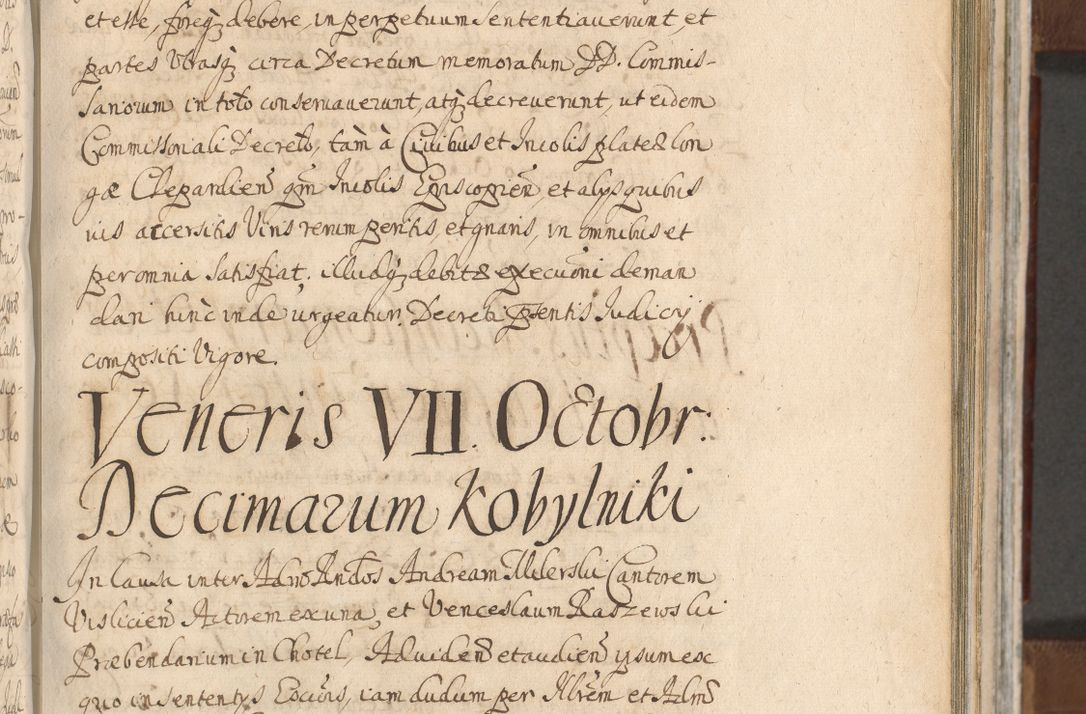 et esse, foreq́ debere, in perpetuum sententiaverunt, et
partes Utrasq́ circa Decretum memoratum DD. Commis-
sariorum in toto conservaverunt, atq́ decreverunt, ut eidem
Commissoriali Decreto, tàm à Civibus et Incolis plateæ Lon
gæ Clepardien̄ qm̄ Incolis Episcopien̄, et alijs quibus
vis accersitis Viris rerum peritis, et gnaris, in omnibus et
per omnia satisfiat, illudq́ debitæ executioni deman
dari hinc inde urgeatur. Decreti pn̄sentis Judicij
compositi Vigore.
Veneris VII. Octobr:
Decimarum Kobylniki
In Causa inter Adm̄ Rn̄dos Andream Melerski Cantorem
Vislicien̄ Actorem ex una, et Venceslaum Raszewski
Præbendarium in Chotel, Ad viden̄ et audien̄ ipsum ex
quo in sententijs iam dudum per Illrēm et Adm̄